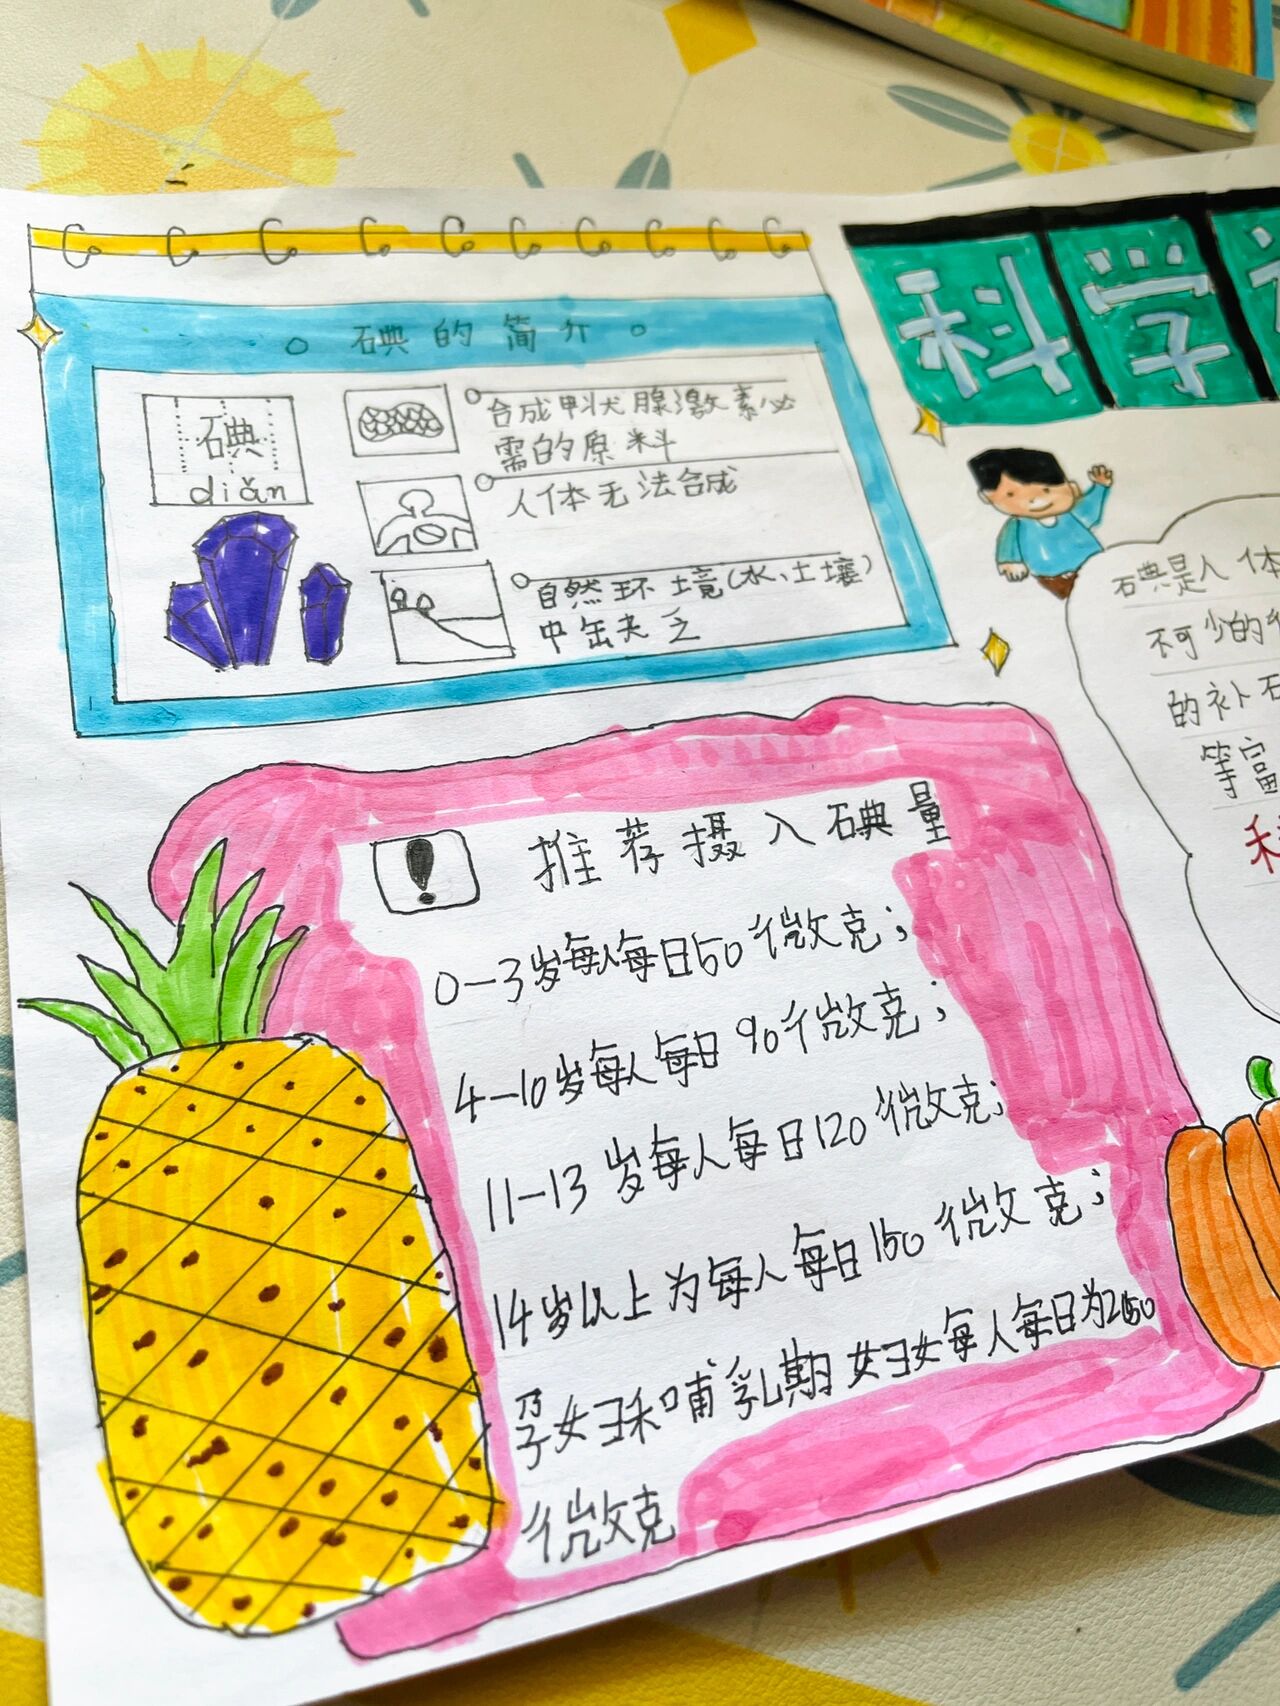 科学
碘的简介
碘
diǎn
合成甲状腺激素必
需的原料
人体无法合成
自然环境(水、土壤)
中缺乏
碘是人体
不可少的
的补
等富
推荐摄入碘量
0-3岁每人每日50微克;
4-10岁每人每日90微克;
11-13岁每人每日120微克;
14岁以上为每人每日150微克;
孕妇和哺乳期妇女每人每日为250
微克